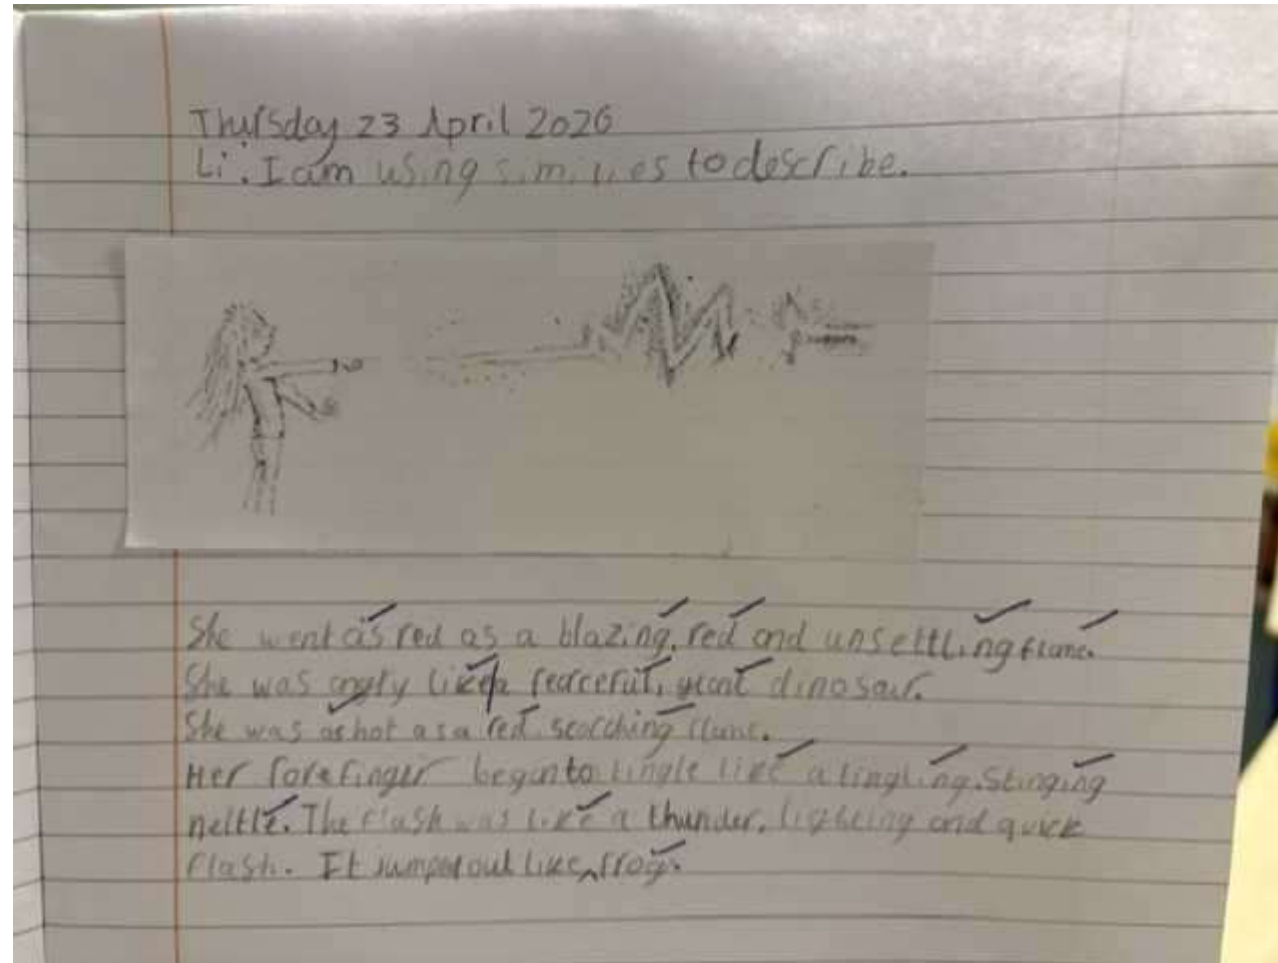 Thursday 23 April 2026
Li: I am using similies to describe.
She went as red as a blazing, red and unsettling flame.
She was angry like a fearceful, giant dinosaur.
She was as hot as a red scorching flame.
Her forefinger began to tingle like a tingling, stinging
nettle. The flash was like a thunder, lighting and quick
flash. It jumped out like frog.